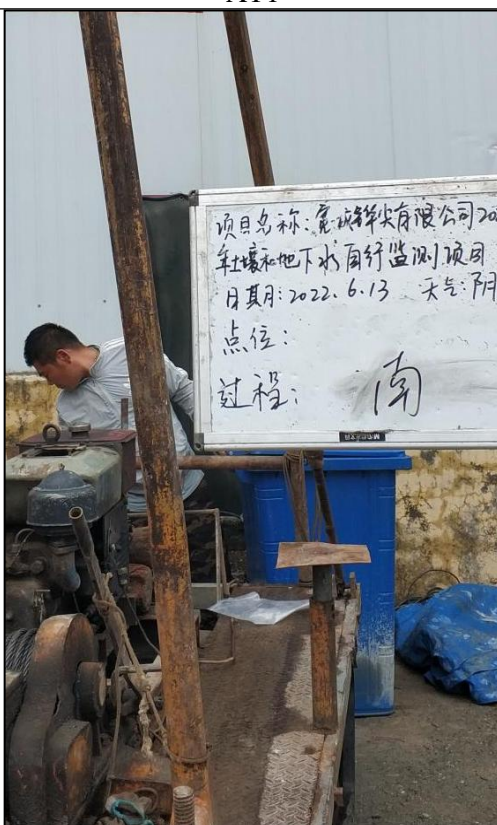 项目名称：宽城铧尖有限公司20
年土壤和地下水自行监测项目
日期：2022.6.13 天气：阴
点位：
过程：南